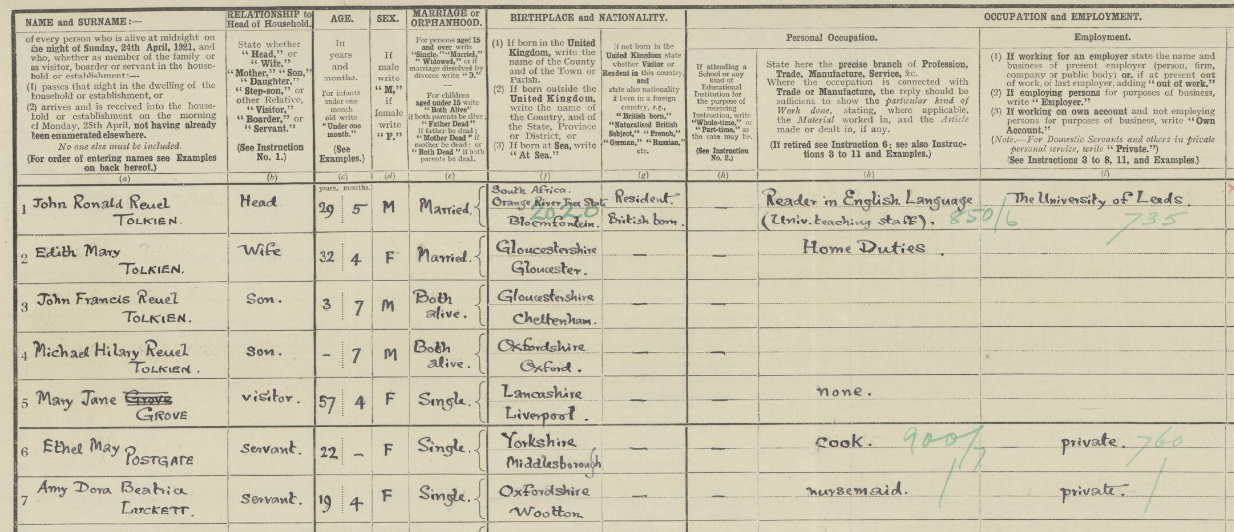 NAME and SURNAME:—
of every person who is alive at midnight on
the night of Sunday, 24th April, 1921, and
who, whether as member of the family or
as visitor, boarder or servant in the house-
hold or establishment:—
(1) passes that night in the dwelling of the
household or establishment, or
(2) arrives and is received into the house-
hold or establishment on the morning
of Monday, 25th April, not having already
been enumerated elsewhere.
No one else must be included.
(For order of entering names see Examples
on back hereof.)
(a)
RELATIONSHIP to
Head of Household.
State whether
"Head," or
"Wife,"
"Mother," "Son,"
"Daughter,"
"Step-son," or
other Relative,
"Visitor,"
"Boarder," or
"Servant."
(See Instruction
No. 1.)
(b)
AGE.
In
years
and
months.
For infants
under one
month
old write
"Under one
month."
(See
Examples.)
(c)
SEX.
If
male
write
"M,"
if
female
write
"F."
(d)
MARRIAGE or
ORPHANHOOD.
For persons aged 15
and over write
"Single," "Married,"
"Widowed," or if
marriage dissolved by
divorce write "D."
For children
aged under 15 write
"Both Alive"
if both parents be alive;
"Father Dead"
if father be dead;
"Mother Dead" if
mother be dead; or
"Both Dead" if both
parents be dead.
(e)
BIRTHPLACE and NATIONALITY.
(1) If born in the United
Kingdom, write the
name of the County
and of the Town or
Parish.
(2) If born outside the
United Kingdom,
write the name of
the Country, and of
the State, Province
or District, or
(3) If born at Sea, write
"At Sea."
(f)
If not born in the
United Kingdom state
whether Visitor or
Resident in this country,
and
state also nationality
if born in a foreign
country, e.g.,
"British born,"
"Naturalised British
Subject," "French,"
"German," "Russian,"
etc.
(g)
OCCUPATION and EMPLOYMENT.
If attending a
School or any
kind of
Educational
Institution for
the purpose of
receiving
Instruction, write
"Whole-time," or
"Part-time," as
the case may be.
(See
Instruction
No. 2.)
(h)
Personal Occupation.
State here the precise branch of Profession,
Trade, Manufacture, Service, &c.
Where the occupation is connected with
Trade or Manufacture, the reply should be
sufficient to show the particular kind of
Work done, stating, where applicable,
the Material worked in, and the Article
made or dealt in, if any.
(If retired see Instruction 6; see also Instruc-
tions 3 to 11 and Examples.)
(k)
Employment.
(1) If working for an employer state the name and
business of present employer (person, firm,
company or public body) or, if at present out
of work, of last employer, adding "out of work."
(2) If employing persons for purposes of business,
write "Employer."
(3) If working on own account and not employing
persons for purposes of business, write "Own
Account."
(Note.—For Domestic Servants and others in private
personal service, write "Private.")
(See Instructions 3 to 8, 11, and Examples.)
(l)
years. months.
1 John Ronald Reuel
TOLKIEN.
Head
29 5
M
Married.
South Africa.
Orange River Free State
2020
Bloemfontein.
Resident.
British born.
Reader in English Language
(Univ. teaching staff). 850/6
The University of Leeds.
735
2 Edith Mary
TOLKIEN.
Wife
32 4
F
Married.
Gloucestershire
Gloucester.
—
—
Home Duties.
3 John Francis Reuel
TOLKIEN.
Son.
3 7
M
Both
alive.
Gloucestershire
Cheltenham.
—
—
4 Michael Hilary Reuel
TOLKIEN.
Son.
- 7
M
Both
alive.
Oxfordshire
Oxford.
—
—
5 Mary Jane Grove
GROVE
visitor.
57 4
F
Single.
Lancashire
Liverpool.
—
—
none.
6 Ethel May
POSTGATE
Servant.
22 -
F
Single.
Yorkshire
Middlesborough
—
—
cook. 900/7
private. 760
7 Amy Dora Beatrice
LUCKETT.
Servant.
19 4
F
Single.
Oxfordshire
Wootton
—
—
nursemaid.
private.